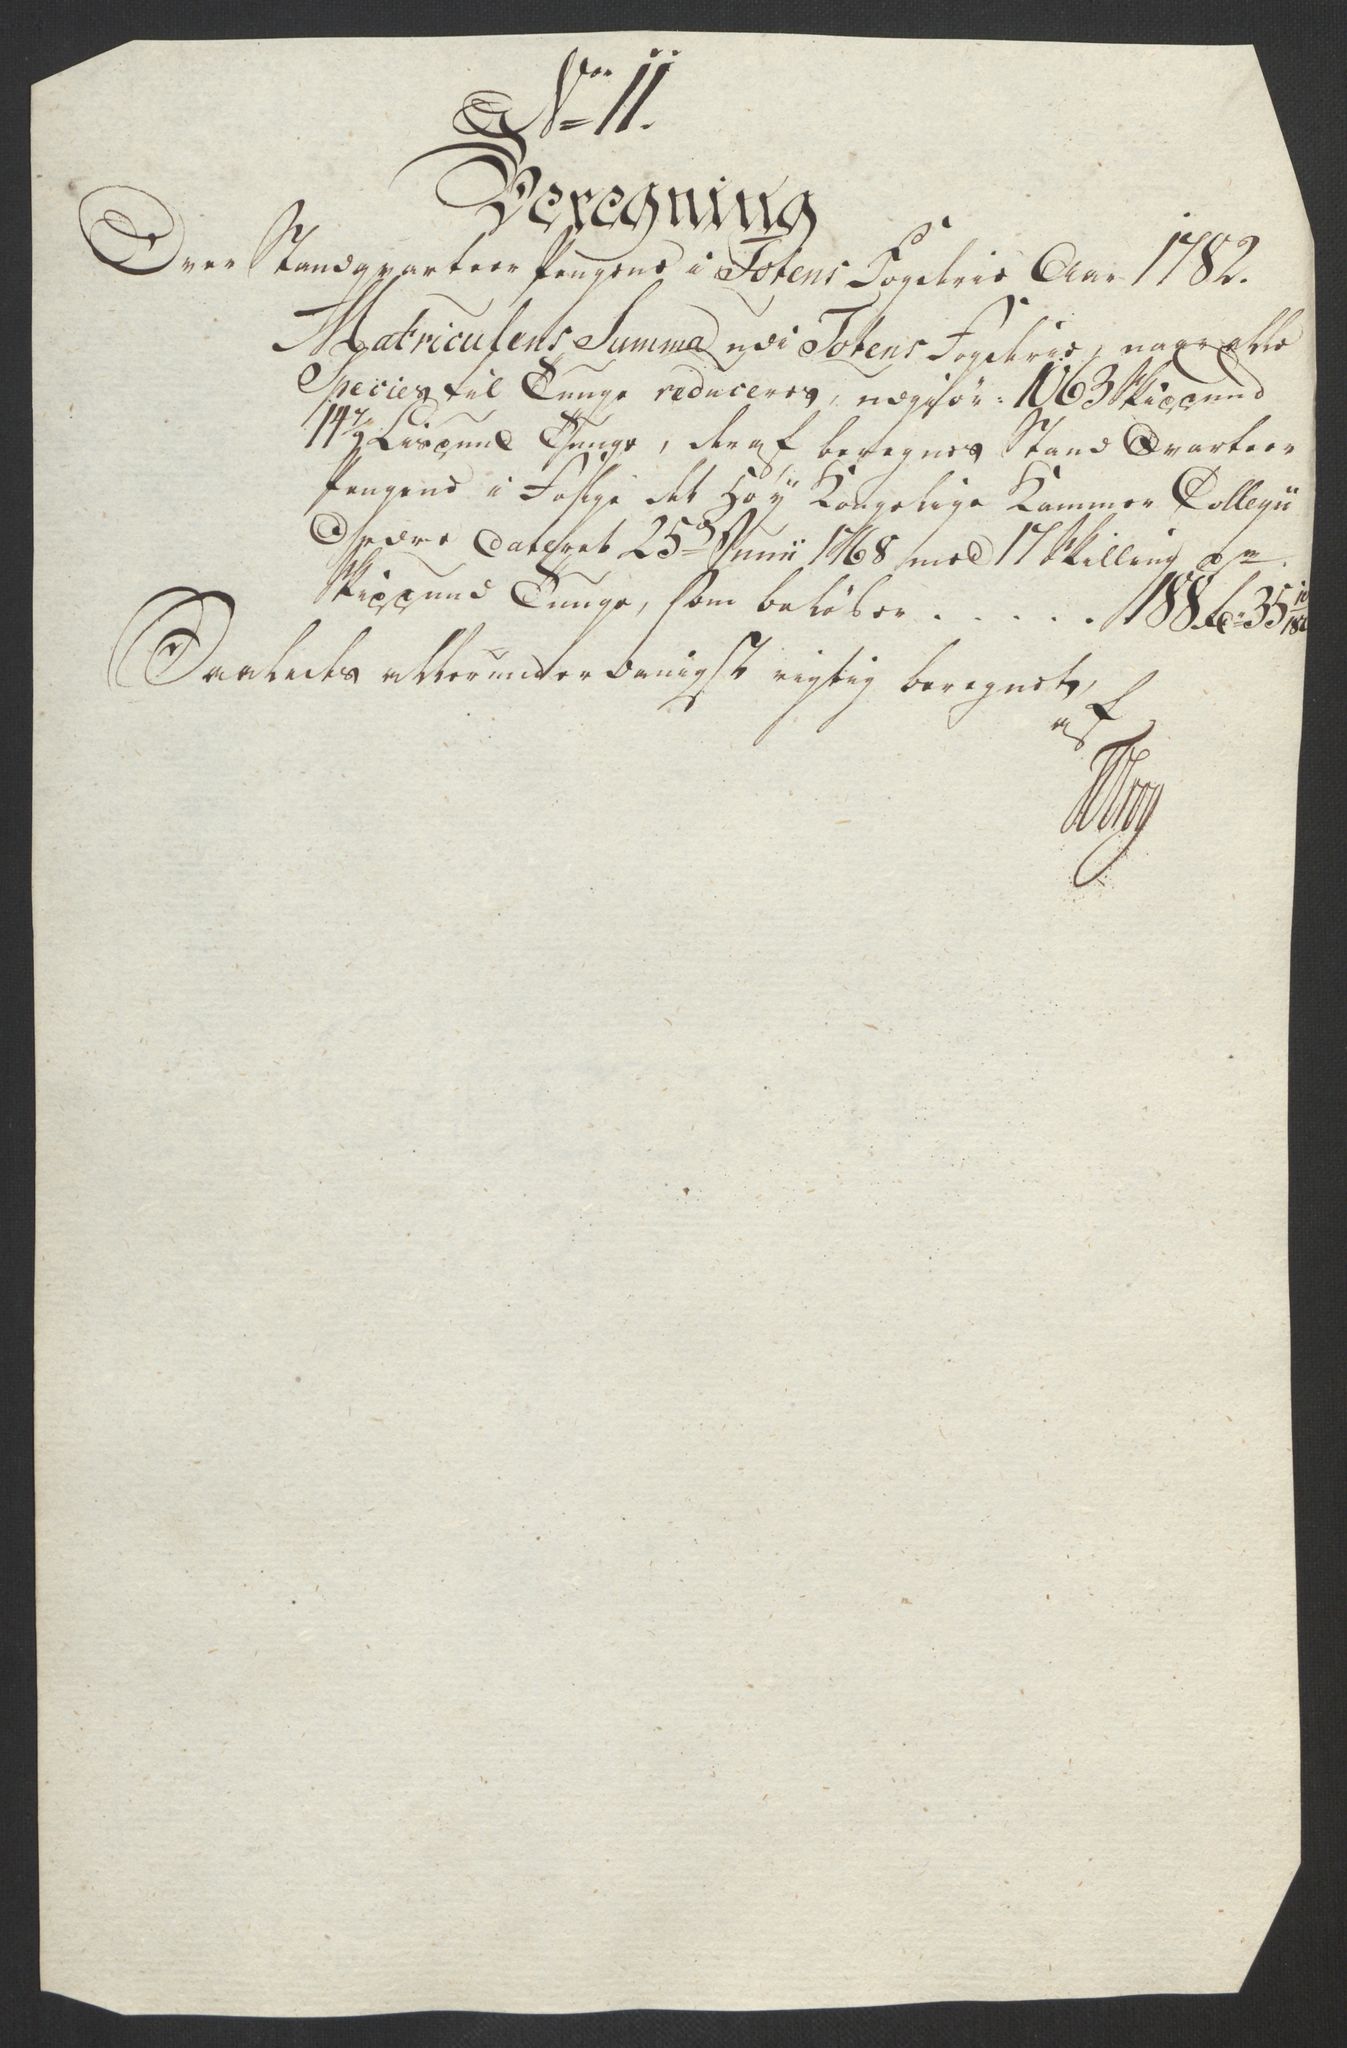 Nr 11.
Beregning
Over Standqvarteer Pengene i Totens Fogderie Aar 1782.
Matriculens Summa udi Totens Fogderie, naar alle
Species til Tunge reduceres, udgiør: 1063 Skippund
14 Lispund Tunge, deraf beregnes Stand Qvarteer
Pengene i Følge det Høy Kongelige Kammer Collegii
Ordre dateret 25d Junii 1768 med 17 Skilling pr
Skippund Tunge, som beløber . . . . . 188 Rd 35
Saaledes allerunderdanigst rigtig beregnet,
af